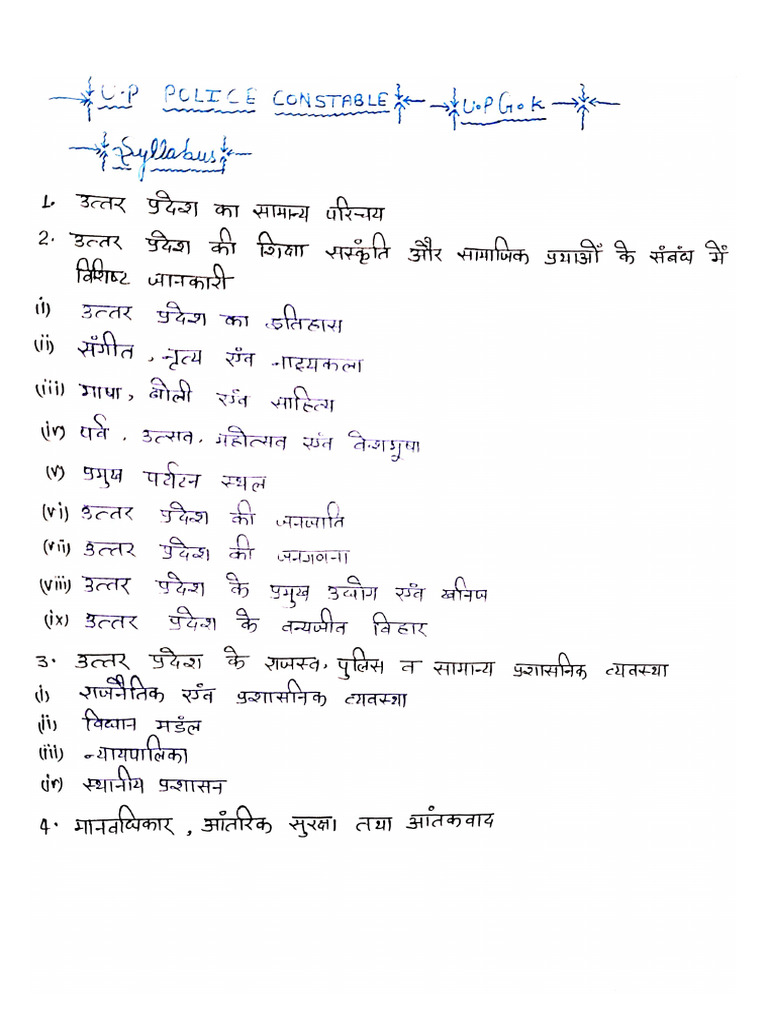 U.P POLICE CONSTABLE U.P G.K
Syllabus
1. उत्तर प्रदेश का सामान्य परिचय
2. उत्तर प्रदेश की शिक्षा संस्कृति और सामाजिक प्रथाओं के संबंध में
विशिष्ट जानकारी
(i) उत्तर प्रदेश का इतिहास
(ii) संगीत, नृत्य एंव नाट्यकला
(iii) भाषा, बोली एंव साहित्य
(iv) पर्व, उत्सव, महोत्सव एंव वेशभूषा
(v) प्रमुख पर्यटन स्थल
(vi) उत्तर प्रदेश की जनजाति
(vii) उत्तर प्रदेश की जनगणना
(viii) उत्तर प्रदेश के प्रमुख उद्योग एंव खनिज
(ix) उत्तर प्रदेश के वन्यजीव विहार
3. उत्तर प्रदेश के राजस्व, पुलिस व सामान्य प्रशासनिक व्यवस्था
(i) राजनैतिक एंव प्रशासनिक व्यवस्था
(ii) विधान मडंल
(iii) न्यायपालिका
(iv) स्थानीय प्रशासन
4. मानवधिकार, आंतरिक सुरक्षा तथा आंतकवाद